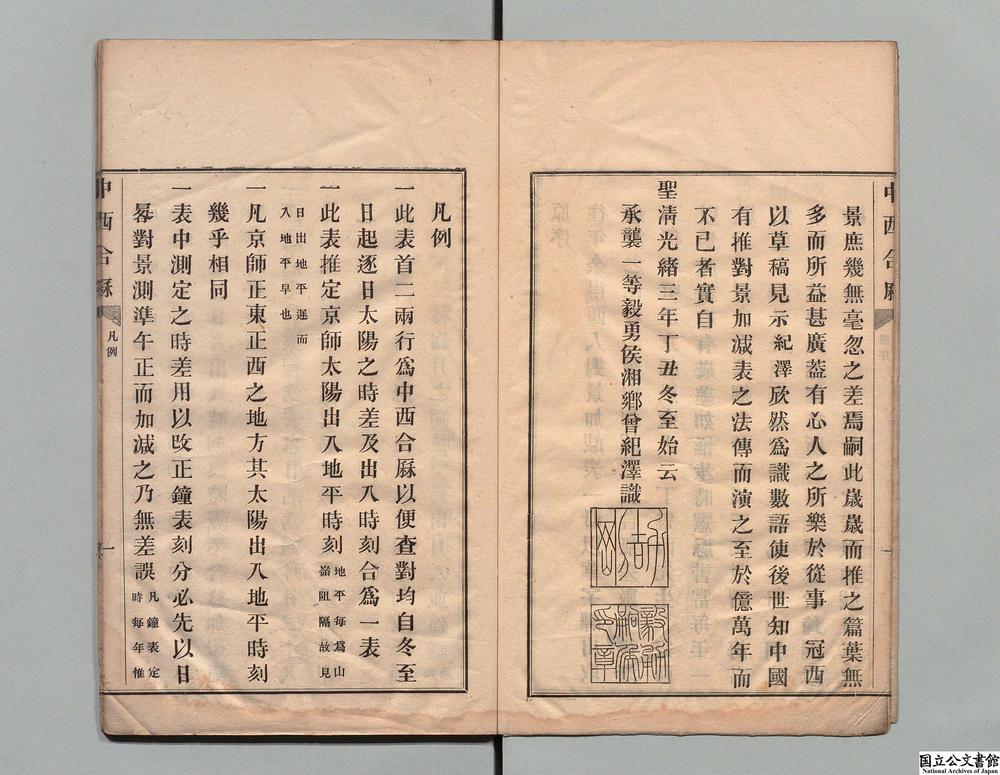 景庶幾無毫忽之差焉嗣此歲歲而推之篇葉無
多而所益甚廣葢有心人之所樂於從事 冠西
以草稿見示紀澤欣然爲識數語使後世知中國
有推對景加減表之法傳而演之至於億萬年而
不已者實自
聖淸光緖三年丁丑冬至始云
承襲一等毅勇侯湘鄉曾紀澤識
凡例
一此表首二兩行爲中西合厤以便查對均自冬至
日起逐日太陽之時差及出入時刻合爲一表
一此表推定京師太陽出入地平時刻地平每爲山
嶺阻隔故見
日出地平遲而
入地平早也
一凡京師正東正西之地方其太陽出入地平時刻
幾乎相同
一表中測定之時差用以改正鐘表刻分必先以日
晷對景測準午正而加減之乃無差誤凡鐘表定
時每年惟
中西合厤
凡例
一
国立公文書館
National Archives of Japan